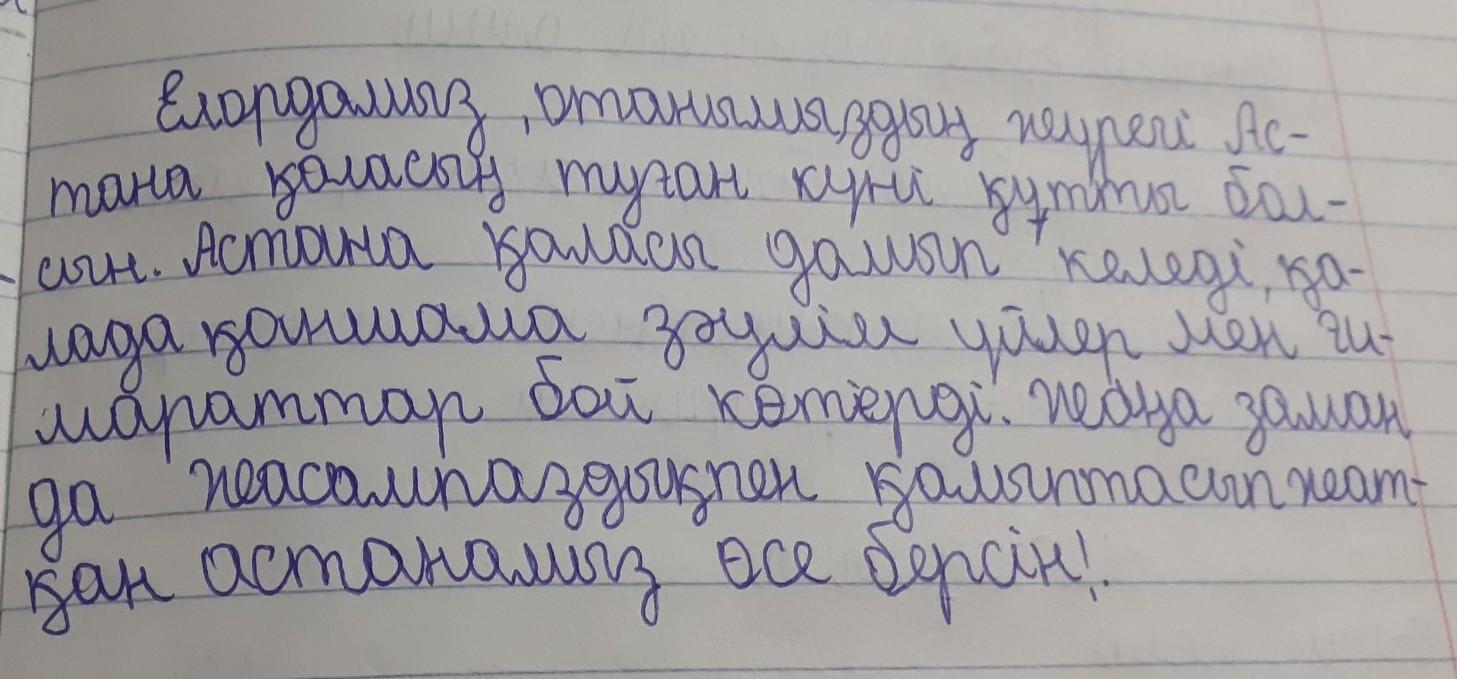 Елордамыз, отанымыздың жүрегі Ас-
тана қаласың туған күні құтты бол-
сын. Астана қаласы дамып келеді, қа-
лада қаншама зәулім үйлер мен ғи-
мараттар бой көтерді. Жаңа заман
да жасампаздықпен қалыптасып жат-
қан астанамыз өсе берсін!.